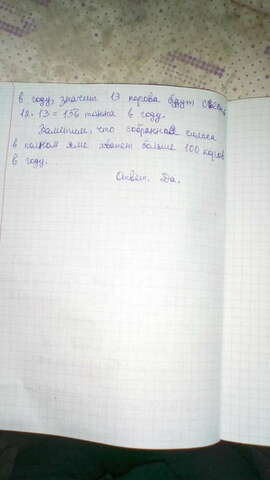 в году, значит 13 корова будут
12·13 = 156 тонна в году.
Заметим, что собранное силоса
в каждом яме хватит больше 100 коров
в году.
Ответ: Да.